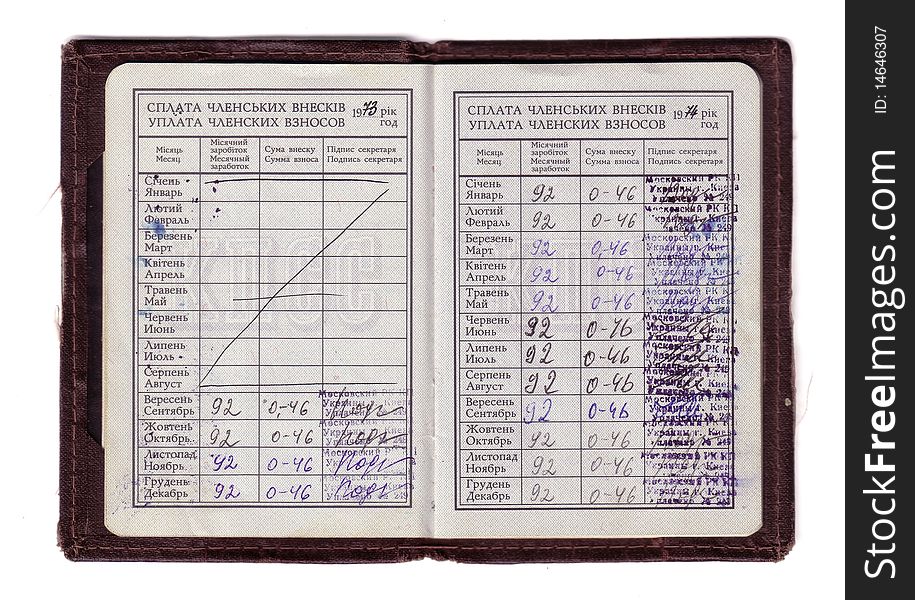 СПЛАТА ЧЛЕНСЬКИХ ВНЕСКІВ 1973 рік
УПЛАТА ЧЛЕНСКИХ ВЗНОСОВ год
Місяць Месяц Місячний заробіток Месячный заработок Сума внеску Сумма взноса Підпис секретаря Подпись секретаря
Січень Январь
Лютий Февраль
Березень Март
Квітень Апрель
Травень Май
Червень Июнь
Липень Июль
Серпень Август
Вересень Сентябрь 92 0-46 Московский
Жовтень Октябрь 92 0-46
Листопад Ноябрь 92 0-46
Грудень Декабрь 92 0-46
СПЛАТА ЧЛЕНСЬКИХ ВНЕСКІВ 1974 рік
УПЛАТА ЧЛЕНСКИХ ВЗНОСОВ год
Місяць Месяц Місячний заробіток Месячный заработок Сума внеску Сумма взноса Підпис секретаря Подпись секретаря
Січень Январь 92 0-46 Московский РК
Лютий Февраль 92 0-46 Московский РК
Березень Март 92 0-46 Московский РК
Квітень Апрель 92 0-46 Московский РК
Травень Май 92 0-46 Московский РК
Червень Июнь 92 0-46 Московский РК
Липень Июль 92 0-46 Московский РК
Серпень Август 92 0-46
Вересень Сентябрь 92 0-46
Жовтень Октябрь 92 0-46 Московский РК Украины г. Киева Уплачено № 249
Листопад Ноябрь 92 0-46
Грудень Декабрь 92 0-46
ID: 14646307
StockFreeImages.com